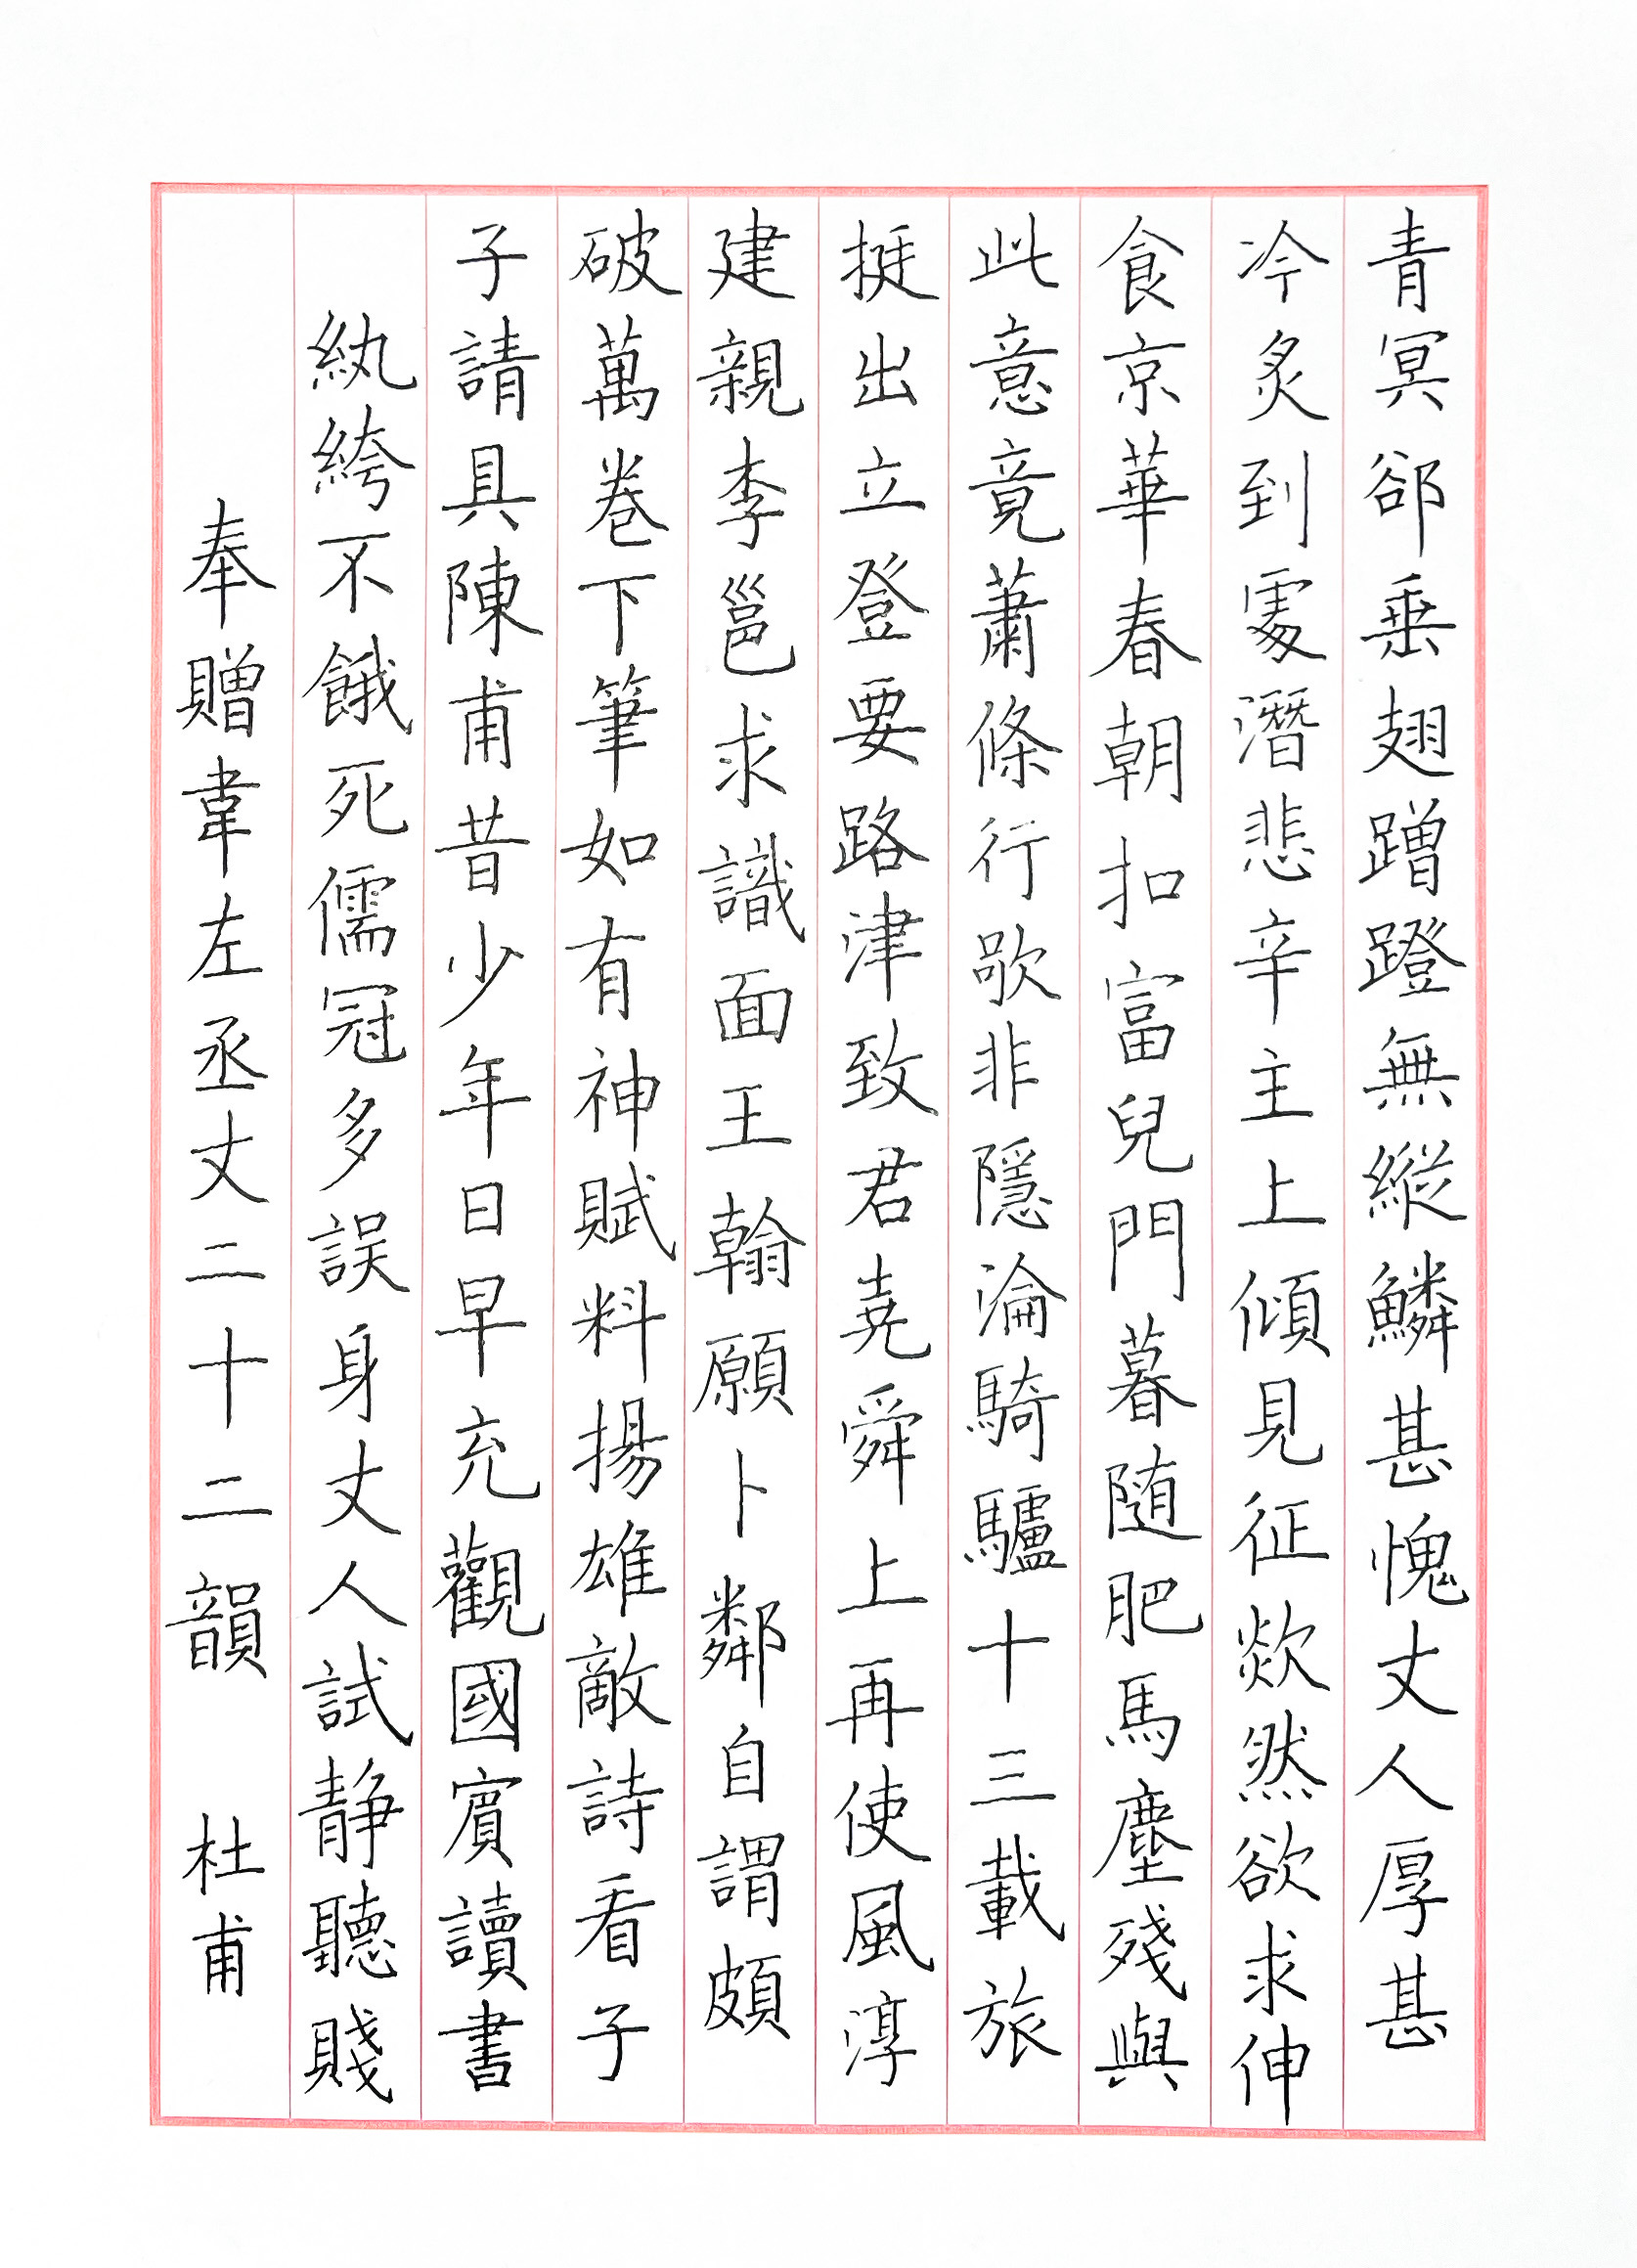 奉贈韋左丞丈二十二韻 杜甫
紈絝不餓死儒冠多誤身丈人試静聽賤
子請具陳甫昔少年日早充觀國賓讀書
破萬卷下筆如有神賦料揚雄敵詩看子
建親李邕求識面王翰願卜鄰自謂頗
挺出立登要路津致君堯舜上再使風淳
此意竟蕭條行歌非隱淪騎驢十三載旅
食京華春朝扣富兒門暮随肥馬塵殘與
冷炙到處潛悲辛主上傾見征欻然欲求伸
青冥郤垂翅蹭蹬無縱鱗甚愧丈人厚甚